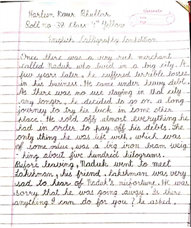 Harleen Kaur Bhullar
Roll no - 37 Class 4th Yellow
English Calligraphy
Once there was a very rich merchant
called Naduk who lived in a big city. A
few years later, he suffered terrible losses
in his business. He came under heavy debt.
As there was no use staying in that city
any longer, he decided to go on a long
journey to try his luck in some other
place. He sold off almost everything he
had in order to pay off his debts. The
only thing he was left with, which was
of some value, was a big iron beam weig-
hing about five hundred kilograms.
Before leaving, Naduk went to meet
Lakshman, his friend. Lakshman was very
sad to hear of Naduk's misfortune. He was
sorry that he was going away. Is there
anything I can do for you? he asked.